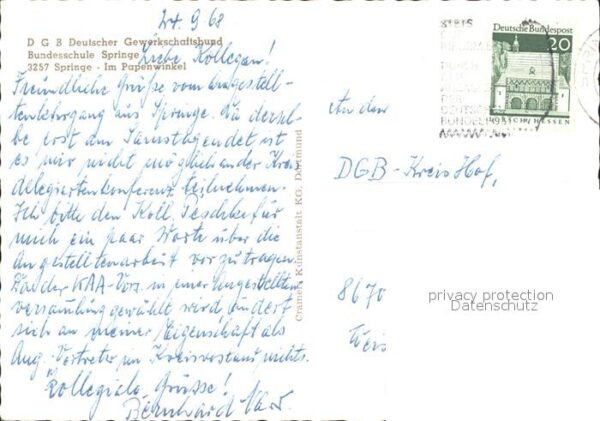 24.9.68
D G B Deutscher Gewerkschaftsbund
Bundesschule Springe
3257 Springe - Im Papenwinkel
Liebe Kollegen!
Freundliche Grüsse vom Angestell-
tenlehrgang aus Springe. Da dersel-
be erst am Samstag endet ist
es mir nicht möglich an der Kreis
delegiertenkonferenz teilnehmen.
Ich bitte den Koll. Peschke für
mich ein paar Worte über die
Angestelltenarbeit vorzutragen.
Da der KAA-Vors. in einer Angestellten
versamlung gewählt wird, ändert
sich an meiner Eigenschaft als
Ang.-Vertreter im Kreisvorstand nichts.
Kollegiale Grüsse!
Bernhard
Cramers Kunstanstalt KG, Dortmund
Deutsche Bundespost
20
An den
DGB-Kreis Hof,
8670
privacy protection
Datenschutz